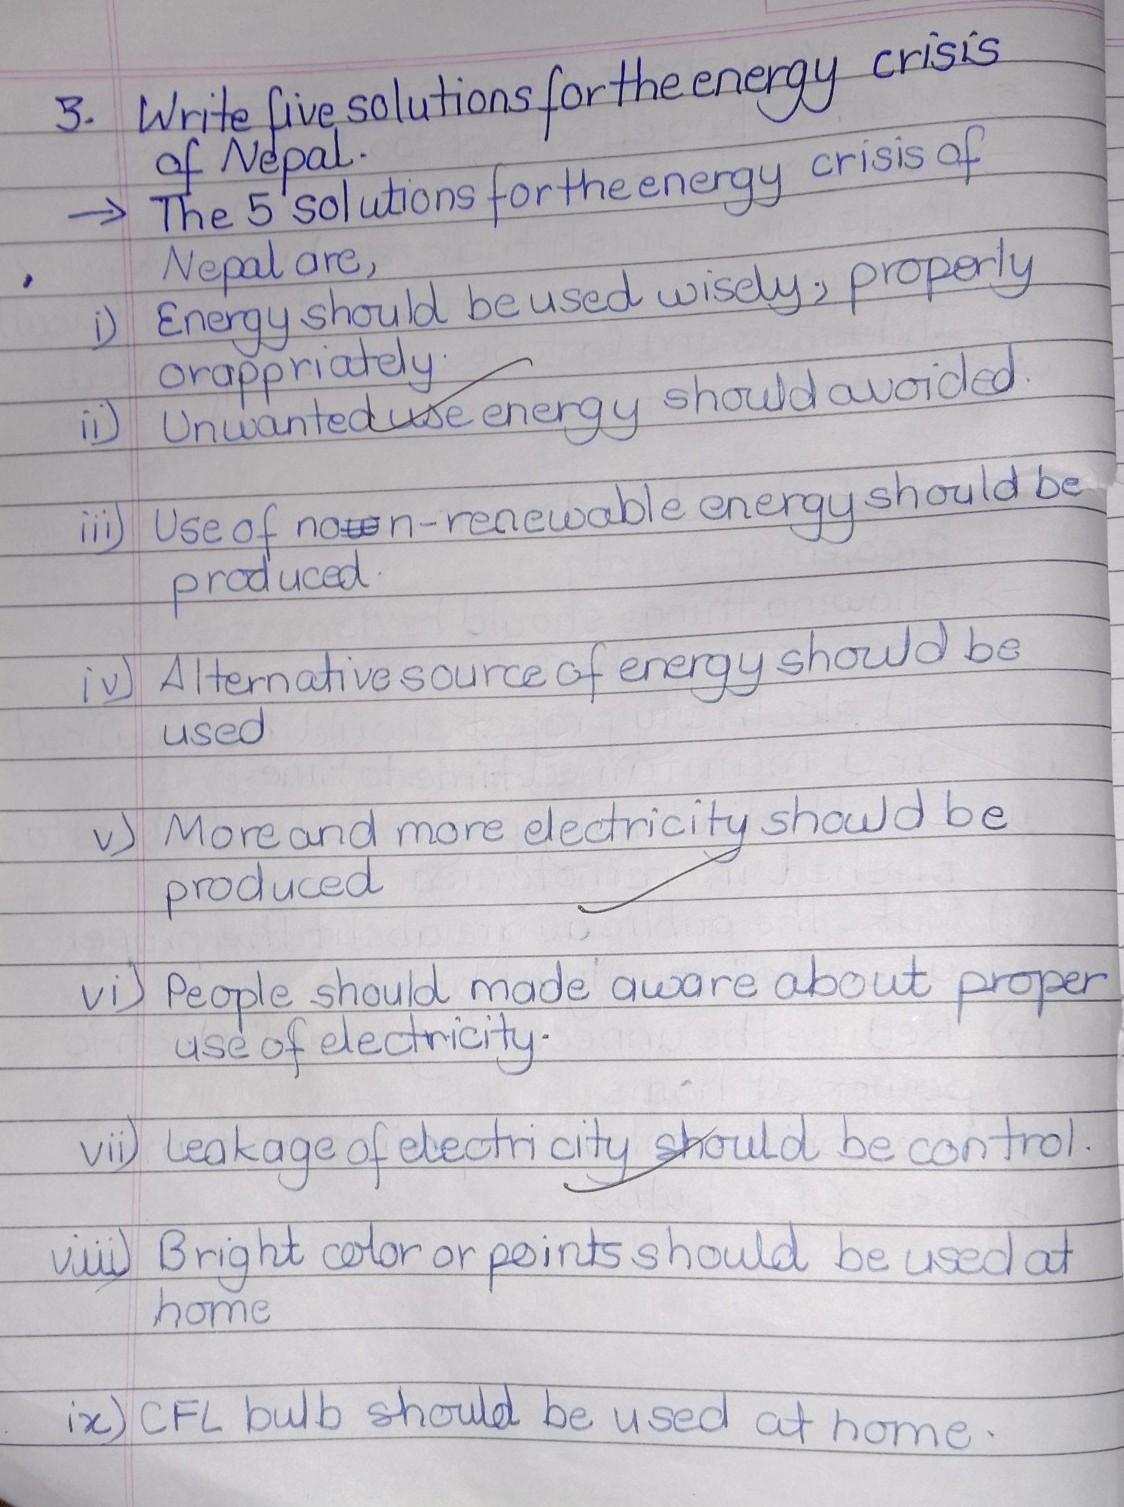 3. Write five solutions for the energy crisis
of Nepal.
→ The 5 solutions for the energy crisis of
Nepal are,
i) Energy should be used wisely, properly
orappriately.
ii) Unwanted use energy should avoided.
iii) Use of non-renewable energy should be
produced.
iv) Alternative source of energy should be
used
v) More and more electricity should be
produced
vi) People should made aware about proper
use of electricity.
vii) Leakage of electricity should be control.
viii) Bright color or points should be used at
home
ix) CFL bulb should be used at home.